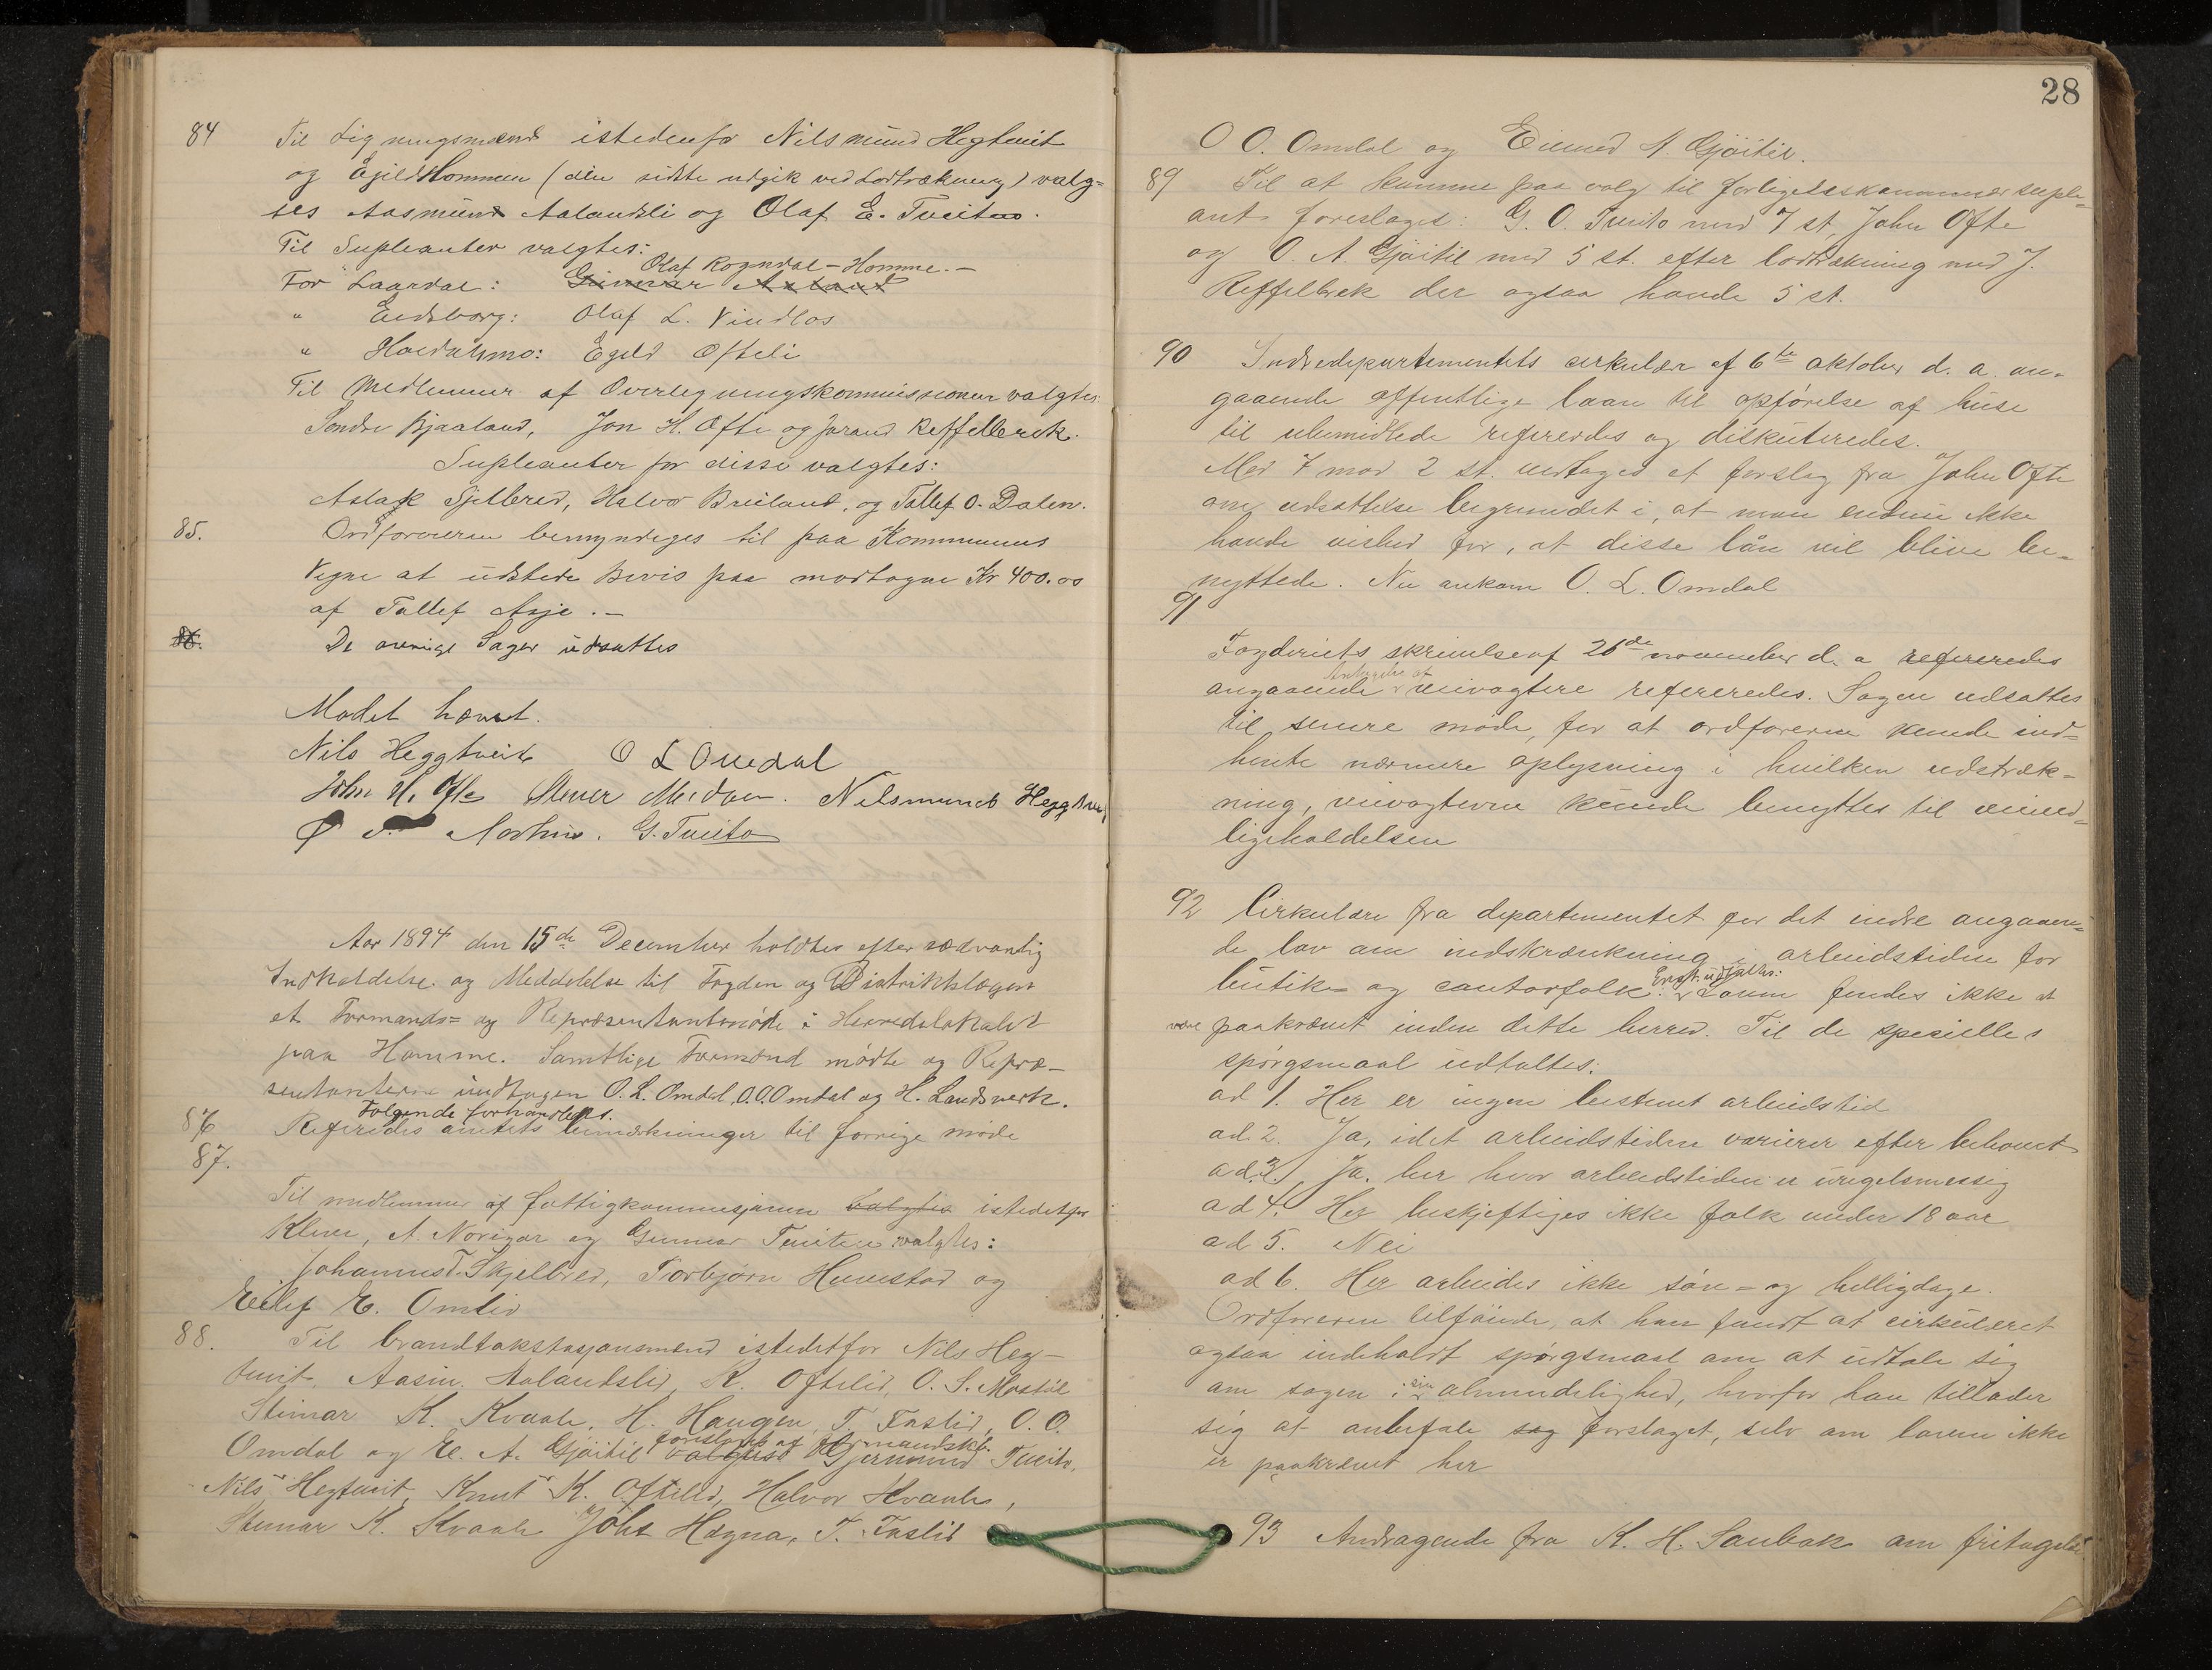 84 Til Ligningsmænd istedenfor Nilsmund Hegtveit
og Egild Hommen (den sidste udgik ved Lodtrækning) valg-
tes Aasmund Aalandsli og Olaf E. Tveiten.
Til Supleanter valgtes:
Olaf Rogndal-Homme.-
For Laardal: Gunnar Aaland
" Eidsborg: Olaf L. Vindlos
" Høidalsmo: Egild Ofteli
Til Medlemmer af Overligningskommissionen valgtes
Sondre Bjaaland, Jon H. Ofte og Jørand Reffelbrek.
Supleanter for disse valgtes:
Aslak Sjelbred, Halvor Breiland, og Tallef O. Dalen.
85. Ordføreren bemyndiges til paa Kommunens
Vegne at udstede Bevis paa modtagne Kr 400.00
af Tallef Asje.-
86. De øvrige Sager udsattes
Mødet hævet.
Nils Heggtveit O L Omdal
John H. Ofte Stener Meidaen. Nilsmund Heggtveit
G. Tveito
Aar 1894 den 15de December holdtes efter sædvanlig
Indkaldelse og Meddelelse til Fogden og Distriktslægen
et Formands= og Repræsentantmøde i Herredslokalet
paa Homme. Samtlige Formænd mødte og Repræ-
sentanterne undtagen O. L. Omdal, O.O. Omdal og H. Landsverk.
Følgende forhandledes.
86 Referedes amtets bemærkninger til forrige møde
87.
Til medlemmer af fattigkommisjonen valgtes istedetfor
Kleive, A. Norigar og Gunnar Tveiten valgtes:
Johannes T. Skjelbred, Torbjørn Huvestad og
Eilef E. Omlid
88. Til brandtakstasjonsmænd istedetfor Nils Heg-
tveit, Aasm. Aalandslid, K. Oftelid, O. S. Mostøl
Steinar K. Kvaale, H. Haugen, T. Faslid, O. O.
Omdal og E. A. Gjøitil foreslaat af formandsk.
valgtes Gjermund Tveito,
Nils Hegtveit, Knut K. Oftelid, Halvor Kvaale,
Steinar K. Kvaale Johs Hegna, T. Faslid
28
O O. Omdal og Eivind A. Gjøitil.
89 Til at komme paa valg til forligelseskommissærsuple-
ant foreslages: G. O. Tveito med 7 st, John Ofte
og O. A. Gjøitil med 5 st. efter lodtrækning med J.
Reffelbrek der ogsaa havde 5 st.
90 Indredepartementets cirkulær af 6te oktober d. a. an-
gaaende offentlige laan til opførelse af huse
til ubemidlede refereredes og diskuteredes.
Med 7 mod 2 st. vedtoges et forslag fra John Ofte
om udsættelse begrundet i, at man endnu ikke
havde vished for, at disse lån vil blive be-
nyttede. Nu ankom O. L. Omdal
91
Fogderiets skrivelse af 26de november d. a refereredes
angaaende Antagelse af veivogtere refereredes. Sagen udsattes
til senere møde, for at ordføreren kunde ind=
hente nærmere oplysning i hvilken udstræk-
ning, veivogterne kunde benyttes til veived-
ligeholdelsen
92 Cirkulære fra departementet for det indre angaaen=
de lov om indskrænkning i arbeidstiden for
butik= og contorfolk. Enst. udtaltes: Loven findes ikke at
være paakrævet inden dette herred. Til de specielle
spørgsmaal udtaltes:
ad 1. Her er ingen bestemt arbeidstid
ad 2. Ja, idet arbeidstiden varierer efter behovet
ad 3. Ja. her hvor arbeidstiden er uregelmessig
ad 4. Her beskjeftiges ikke folk under 18 aar
ad 5. Nei
ad 6. Her arbeides ikke søn= og helligdage.
Ordføreren tilføiede, at han fandt at cirkuleret
ogsaa indeholdt spørgsmaal om at udtale sig
om sagen i sin almindelighed, hvorfor han tillader
sig at anbefale sag forslaget, selv om loven ikke
er paakrævet her
93 Andragende fra K. H. Saubak om fritagelse